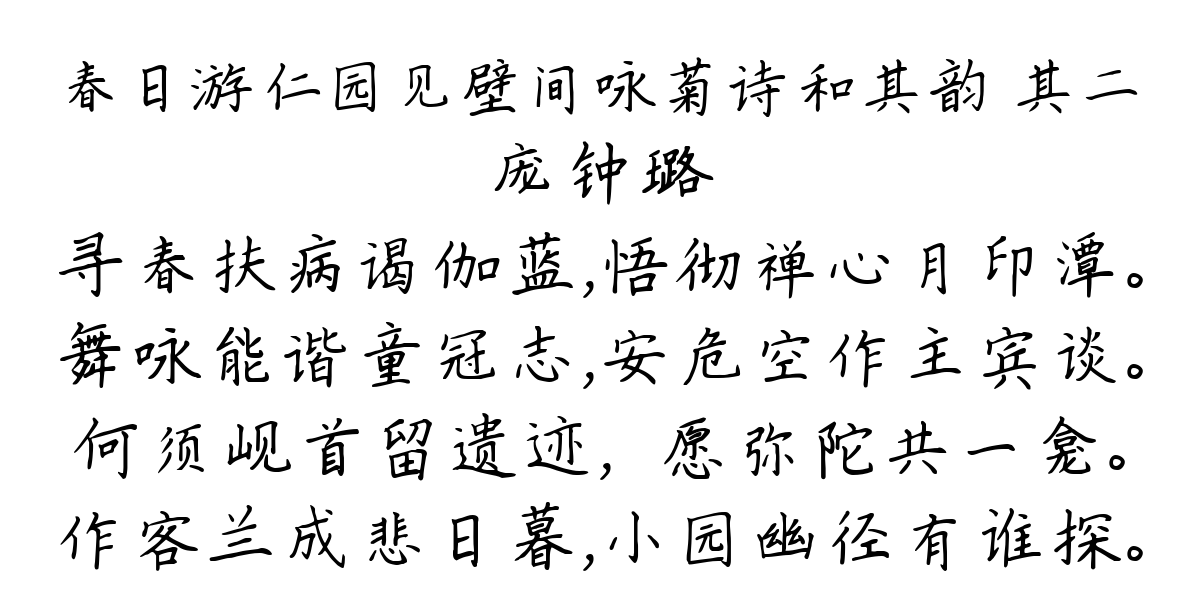 春日游仁园见壁间咏菊诗和其韵 其二
庞钟璐
寻春扶病谒伽蓝,悟彻禅心月印潭。
舞咏能谐童冠志,安危空作主宾谈。
何须岘首留遗迹，愿弥陀共一龛。
作客兰成悲日暮,小园幽径有谁探。